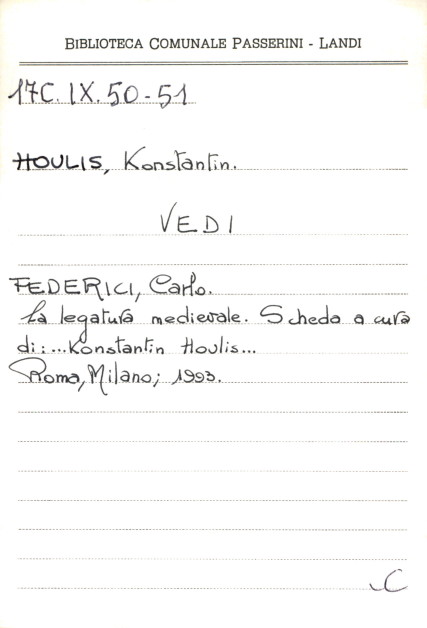 BIBLIOTECA COMUNALE PASSERINI - LANDI
17C. IX. 50-51
HOULIS, Konstantin.
VEDI
FEDERICI, Carlo.
La legatura medievale. Scheda a cura
di:...Konstantin Houlis...
Roma, Milano; 1993.
C